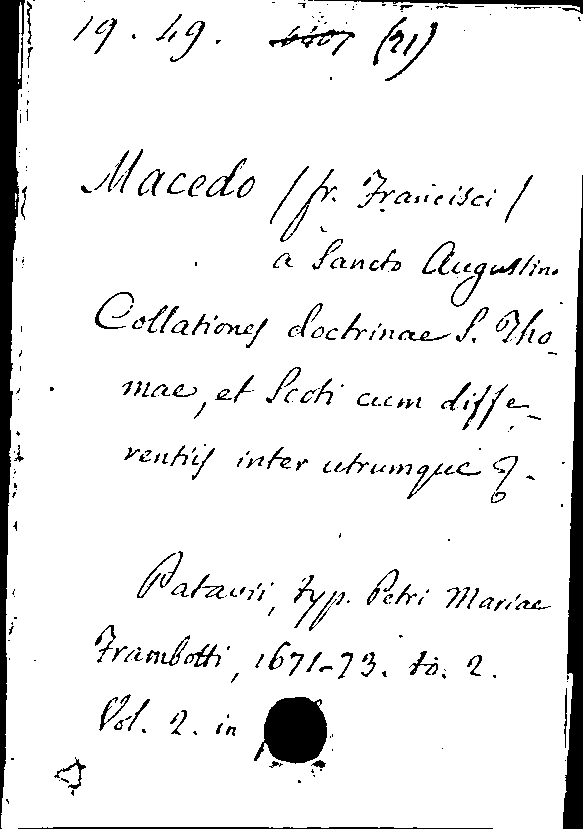 19. 49. (21)
Macedo /fr. Francisci/
a Sancto Augustino
Collationes doctrinae S. Tho-
mae, et Scoti cum diffe-
rentiis inter utrumque
Patavii, typ. Petri Mariae
Frambotti, 1671-73. to. 2.
Vol. 2. in